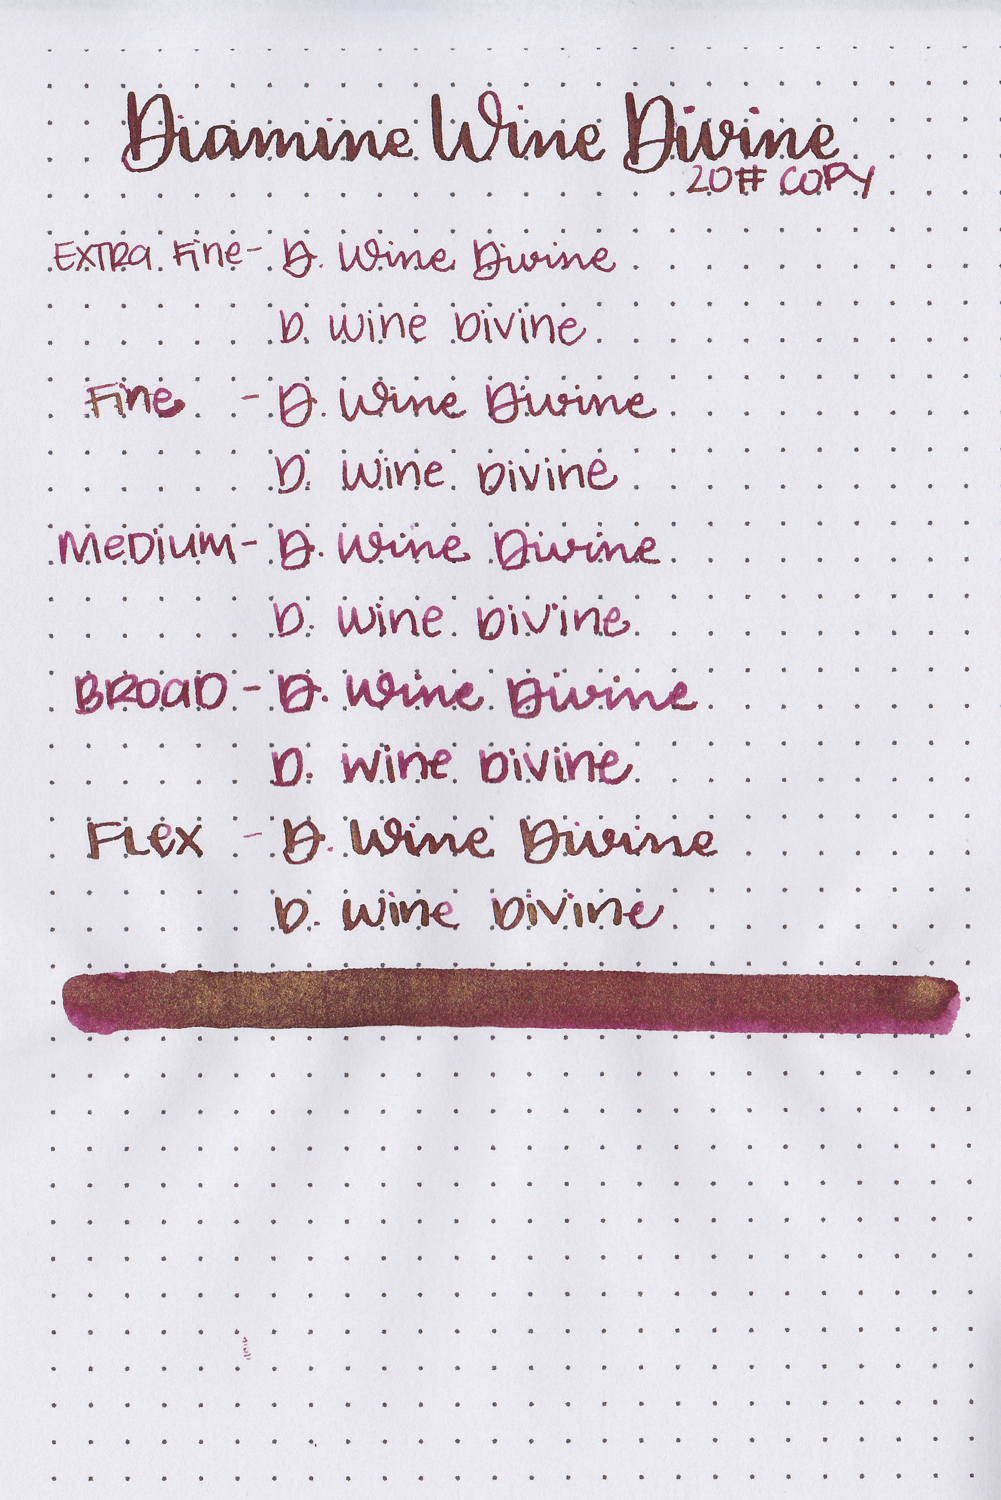 Diamine Wine Divine
20# COPY
EXTRA Fine - D. Wine Divine
D. Wine Divine
Fine - D. Wine Divine
D. Wine Divine
MEDIUM - D. Wine Divine
D. Wine Divine
BROAD - D. Wine Divine
D. Wine Divine
FLEX - D. Wine Divine
D. Wine Divine